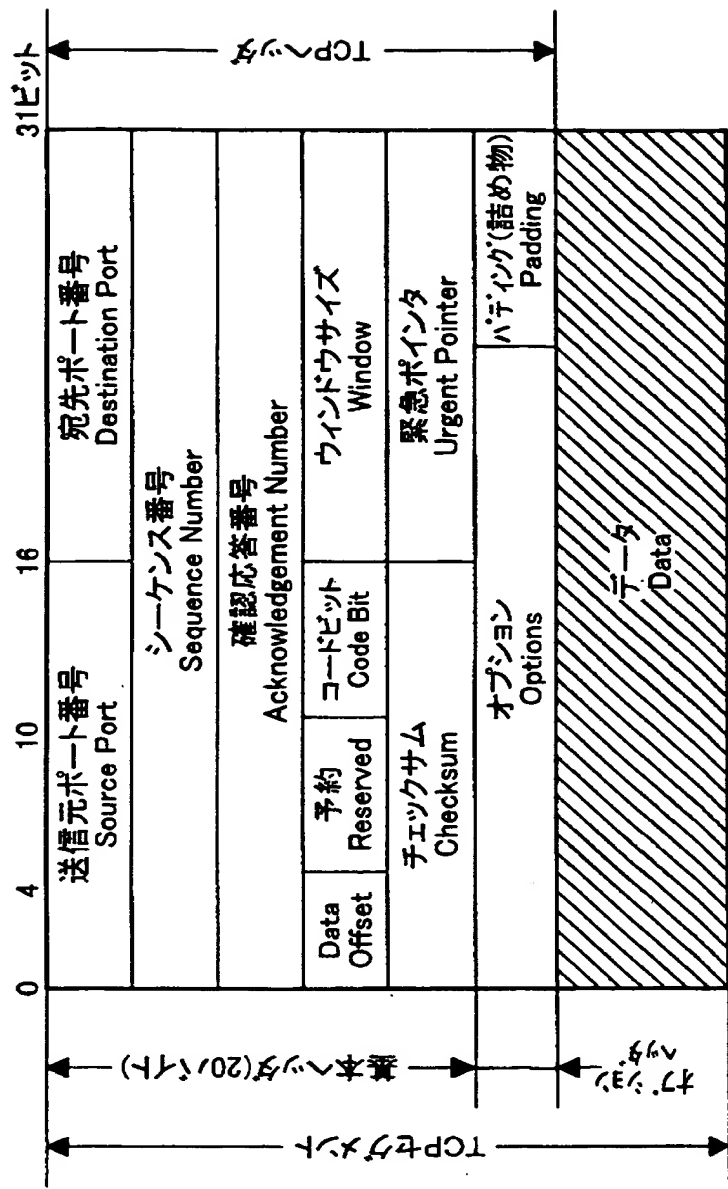 0
4
10
16
31ビット
送信元ポート番号
Source Port
宛先ポート番号
Destination Port
シーケンス番号
Sequence Number
確認応答番号
Acknowledgement Number
Data
Offset
予約
Reserved
コードビット
Code Bit
ウィンドウサイズ
Window
チェックサム
Checksum
緊急ポインタ
Urgent Pointer
オプション
Options
パディング(詰め物)
Padding
データ
Data
TCPヘッダ
基本ヘッダ(20バイト)
オプション
ヘッダ
TCPセグメント